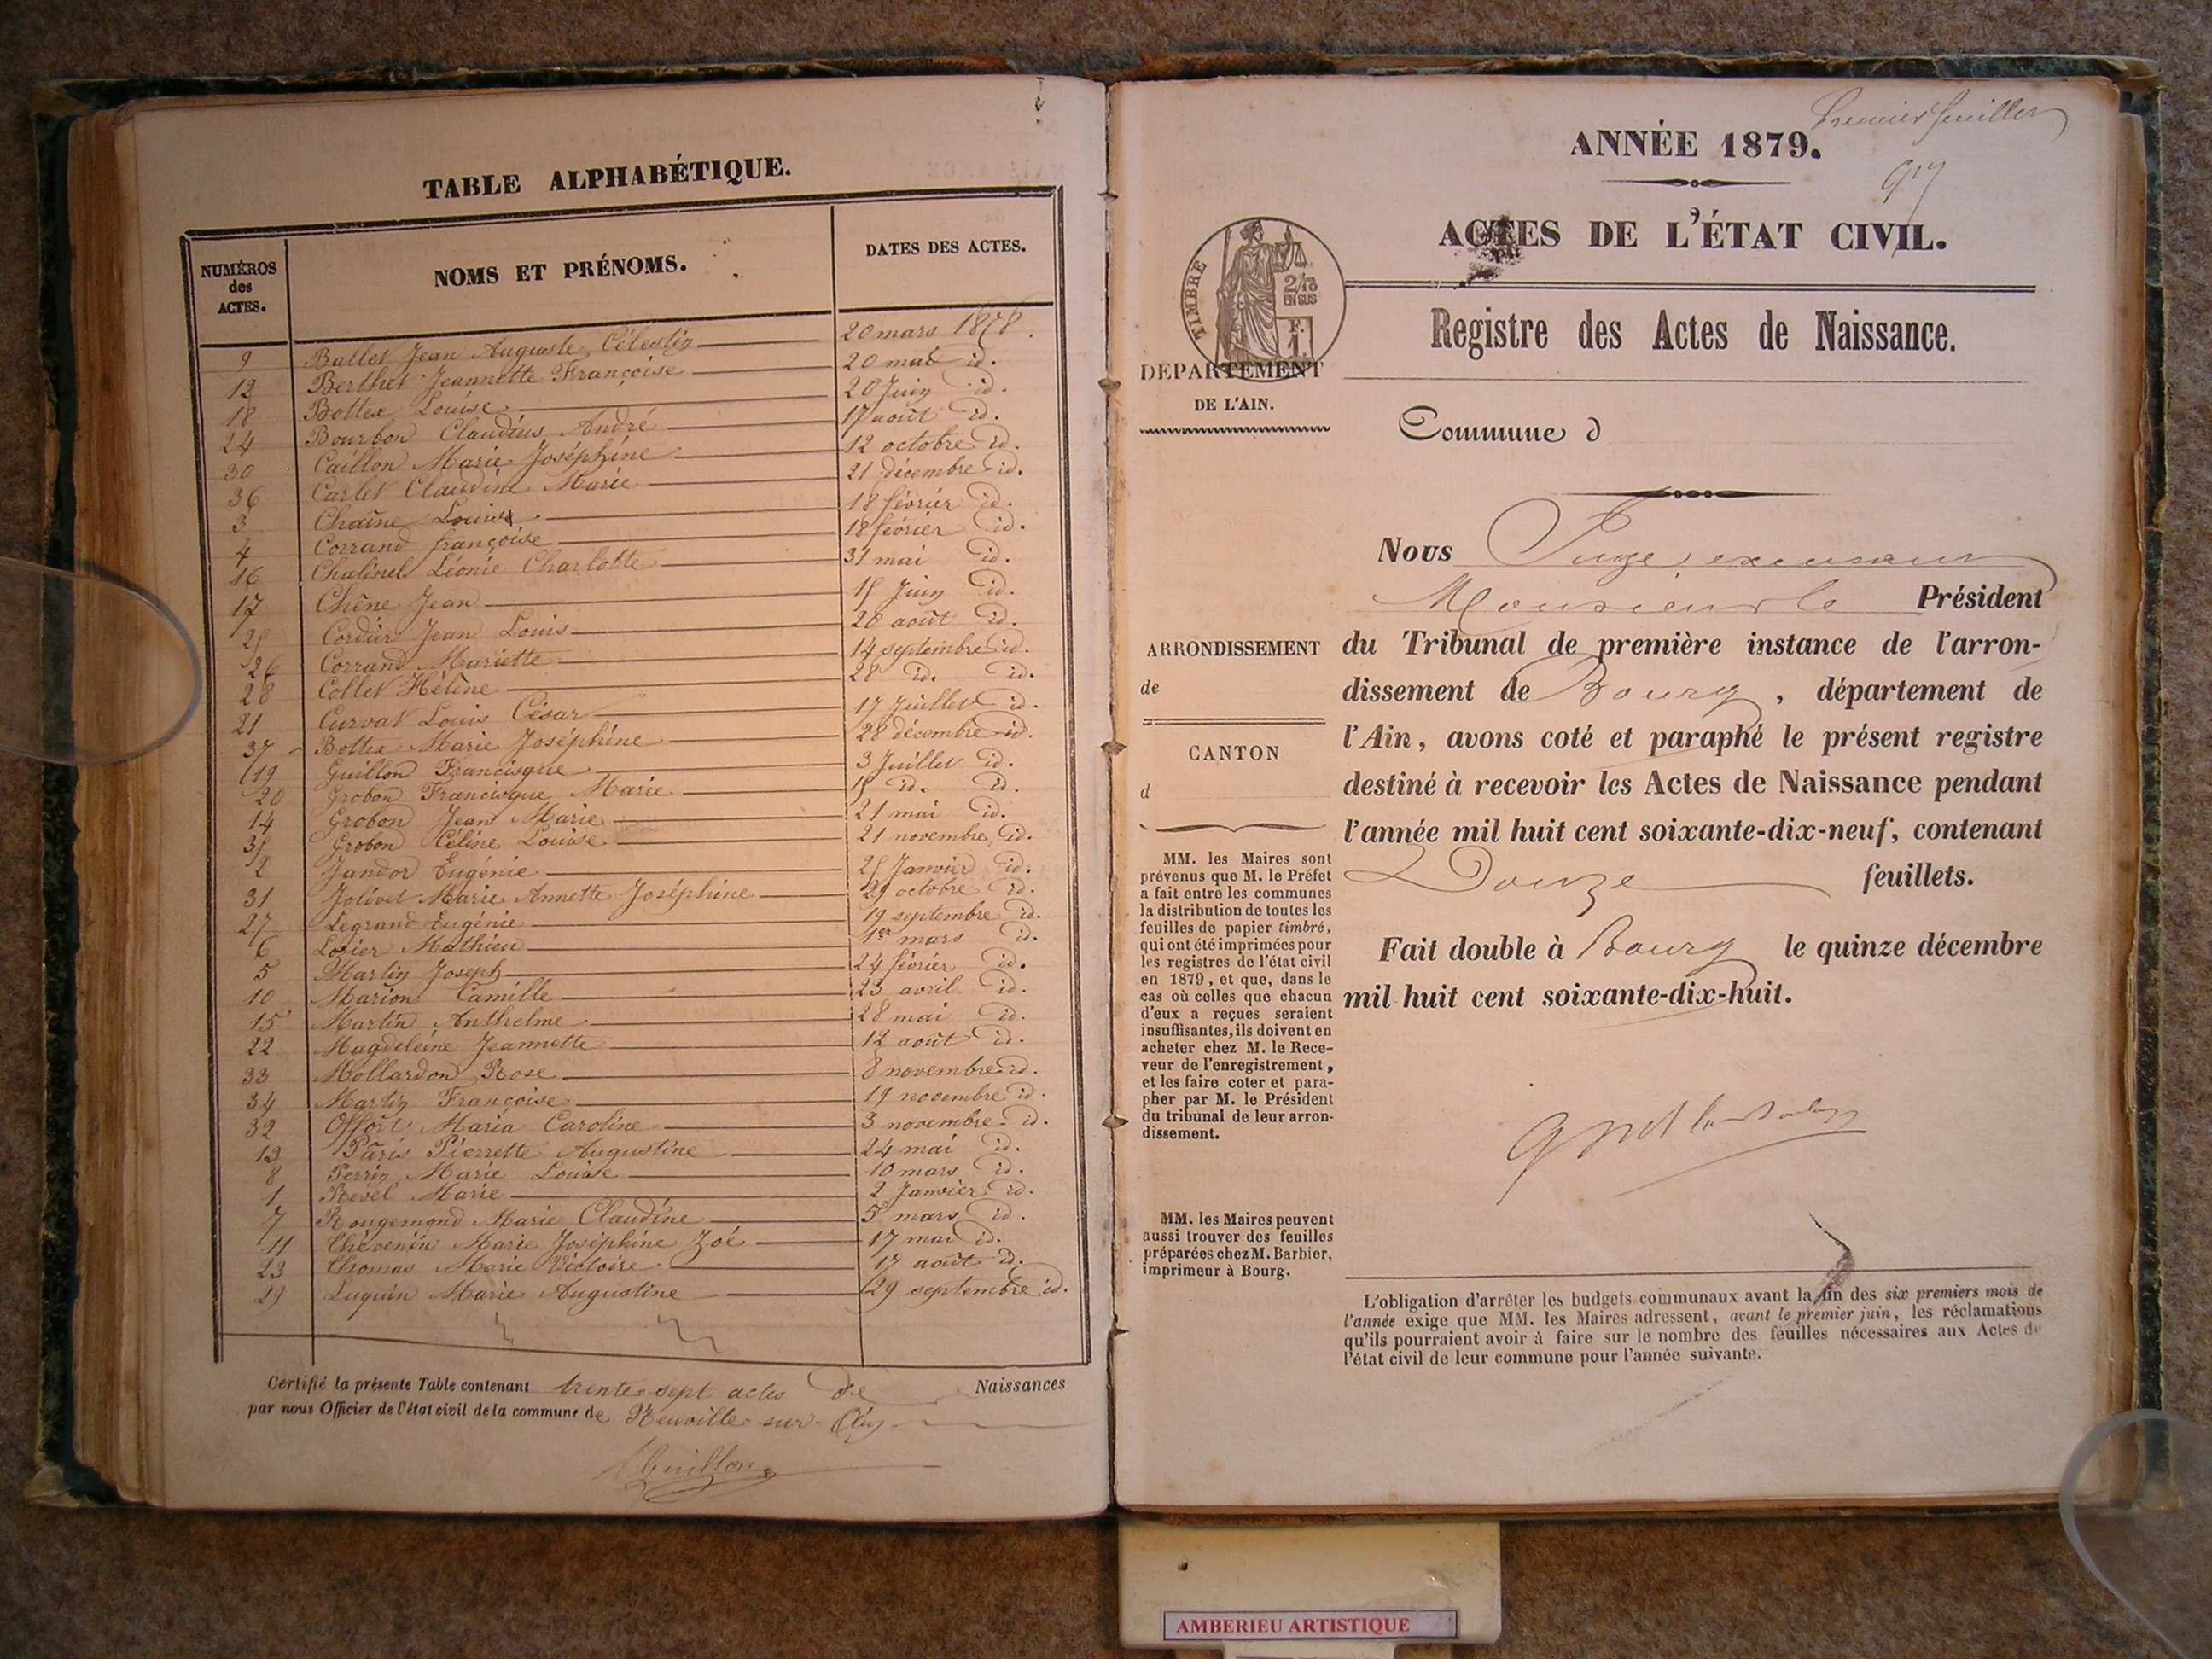 TABLE ALPHABÉTIQUE.
NUMÉROS
des
ACTES.
NOMS ET PRÉNOMS.
DATES DES ACTES.
9 Ballet Jean Auguste Célestin 20 mars 1878.
12 Berthet Jeannette Françoise 20 mai id.
18 Bottex Louise 20 Juin id.
24 Bourbon Claudius André 17 août id.
30 Caillon Marie Joséphine 12 octobre id.
36 Carlet Claudine Marie 21 décembre id.
3 Chaîne Louise 18 février id.
4 Corrand françoise 18 février id.
16 Chatinel Léonie Charlotte 31 mai id.
17 Chêne Jean 15 Juin id.
25 Cordier Jean Louis 20 août id.
26 Corrand Mariette 14 septembre id.
28 Collet Hélène 28 id. id.
21 Curvat Louis César 17 Juillet id.
37 Bottex Marie Joséphine 28 décembre id.
19 Guillon Francisque 3 Juillet id.
20 Grobon Francisque Marie 15 id. id.
14 Grobon Jean Marie 21 mai id.
35 Grobon Céline Louise 21 novembre id.
2 Jandor Eugénie 25 Janvier id.
31 Jolivet Marie Annette Joséphine 29 octobre id.
27 Legrand Eugénie 19 septembre id.
6 Mathieu 1er mars id.
5 Martin Joseph 24 février id.
10 Marion Camille 23 avril id.
15 Martin Anthelme 28 mai id.
22 Magdeleine Jeannette 12 août id.
33 Mollardon Rose 8 novembre id.
34 Martin Françoise 19 novembre id.
32 Maria Caroline 3 novembre id.
13 Pâris Pierrette Augustine 24 mai id.
8 Perrin Marie Louise 10 mars id.
1 Revel Marie 2 Janvier id.
7 Rougemond Marie Claudine 5 mars id.
11 Thévenin Marie Joséphine Zoé 17 mai id.
23 Thomas Marie Victoire 17 août id.
29 Luquin Marie Augustine 29 septembre id.
Certifié la présente Table contenant trente-sept actes de Naissances
par nous Officier de l'état civil de la commune de Neuville-sur-Ain
Guillon
Premier feuillet
ANNÉE 1879.
ACTES DE L'ÉTAT CIVIL.
TIMBRE
2/10
EN SUS
F.
1
Registre des Actes de Naissance.
DEPARTEMENT
DE L'AIN.
Commune d
Nous Juge, excusant
Monsieur le Président
ARRONDISSEMENT
de
CANTON
d
du Tribunal de première instance de l'arron-
dissement de Bourg, département de
l'Ain, avons coté et paraphé le présent registre
destiné à recevoir les Actes de Naissance pendant
l'année mil huit cent soixante-dix-neuf, contenant
Douze feuillets.
Fait double à Bourg le quinze décembre
mil huit cent soixante-dix-huit.
MM. les Maires sont
prévenus que M. le Préfet
a fait entre les communes
la distribution de toutes les
feuilles de papier timbré,
qui ont été imprimées pour
les registres de l'état civil
en 1879, et que, dans le
cas où celles que chacun
d'eux a reçues seraient
insuffisantes, ils doivent en
acheter chez M. le Rece-
veur de l'enregistrement,
et les faire coter et para-
pher par M. le Président
du tribunal de leur arron-
dissement.
MM. les Maires peuvent
aussi trouver des feuilles
préparées chez M. Barbier,
imprimeur à Bourg.
L'obligation d'arrêter les budgets communaux avant la fin des six premiers mois de
l'année exige que MM. les Maires adressent, avant le premier juin, les réclamations
qu'ils pourraient avoir à faire sur le nombre des feuilles nécessaires aux Actes de
l'état civil de leur commune pour l'année suivante.
AMBERIEU ARTISTIQUE